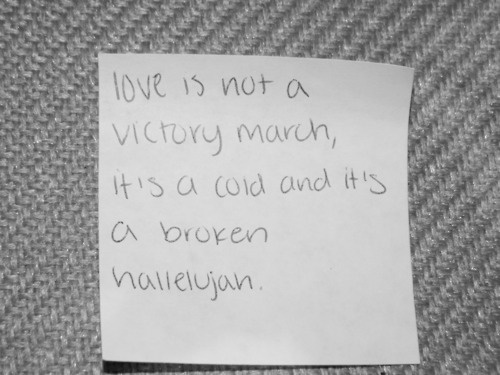 love is not a
victory march,
it's a cold and it's
a broken
hallelujah.